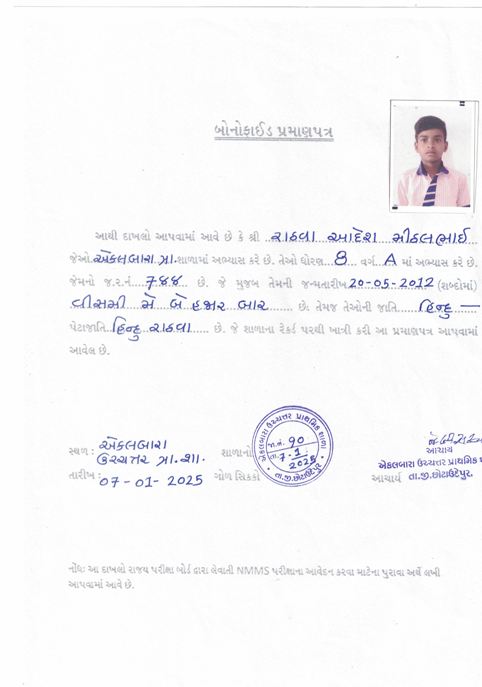 બોનોફાઈડ પ્રમાણપત્ર
આથી દાખલો આપવામાં આવે છે કે શ્રી ..રાઠવા આદેશ મીઠલભાઈ..
જેઓ એકલબારા પ્રા.શાળામાં અભ્યાસ કરે છે. તેઓ ધોરણ...8... વર્ગ..A માં અભ્યાસ કરે છે.
જેમનો જ.ર.નં...788... છે. જે મુજબ તેમની જન્મતારીખ 20-05-2012 (શબ્દોમાં)
વીસમી મે બે હજાર બાર ..... છે. તેમજ તેઓની જાતિ .....હિન્દુ.....
પેટાજાતિ..હિન્દુ રાઠવા..... છે. જે શાળાના રેકર્ડ પરથી ખાત્રી કરી આ પ્રમાણપત્ર આપવામાં
આવેલ છે.
સ્થળ : એકલબારા
ઉચ્ચતર પ્રા.શા.
તારીખ : 07-01-2025
શાળાનો
ગોળ સિક્કો
એકલબારા ઉચ્ચતર પ્રાથમિક શાળા
જા.નં. 90
તા. 7-1-2025
તા.જી.છોટાઉદેપુર
આચાર્ય
એકલબારા ઉચ્ચતર પ્રાથમિક
આચાર્ય તા.જી.છોટાઉદેપુર.
નોંધઃ આ દાખલો રાજય પરીક્ષા બોર્ડ દ્વારા લેવાતી NMMS પરીક્ષાના આવેદન કરવા માટેના પુરાવા અર્થે લખી
આપવામાં આવે છે.